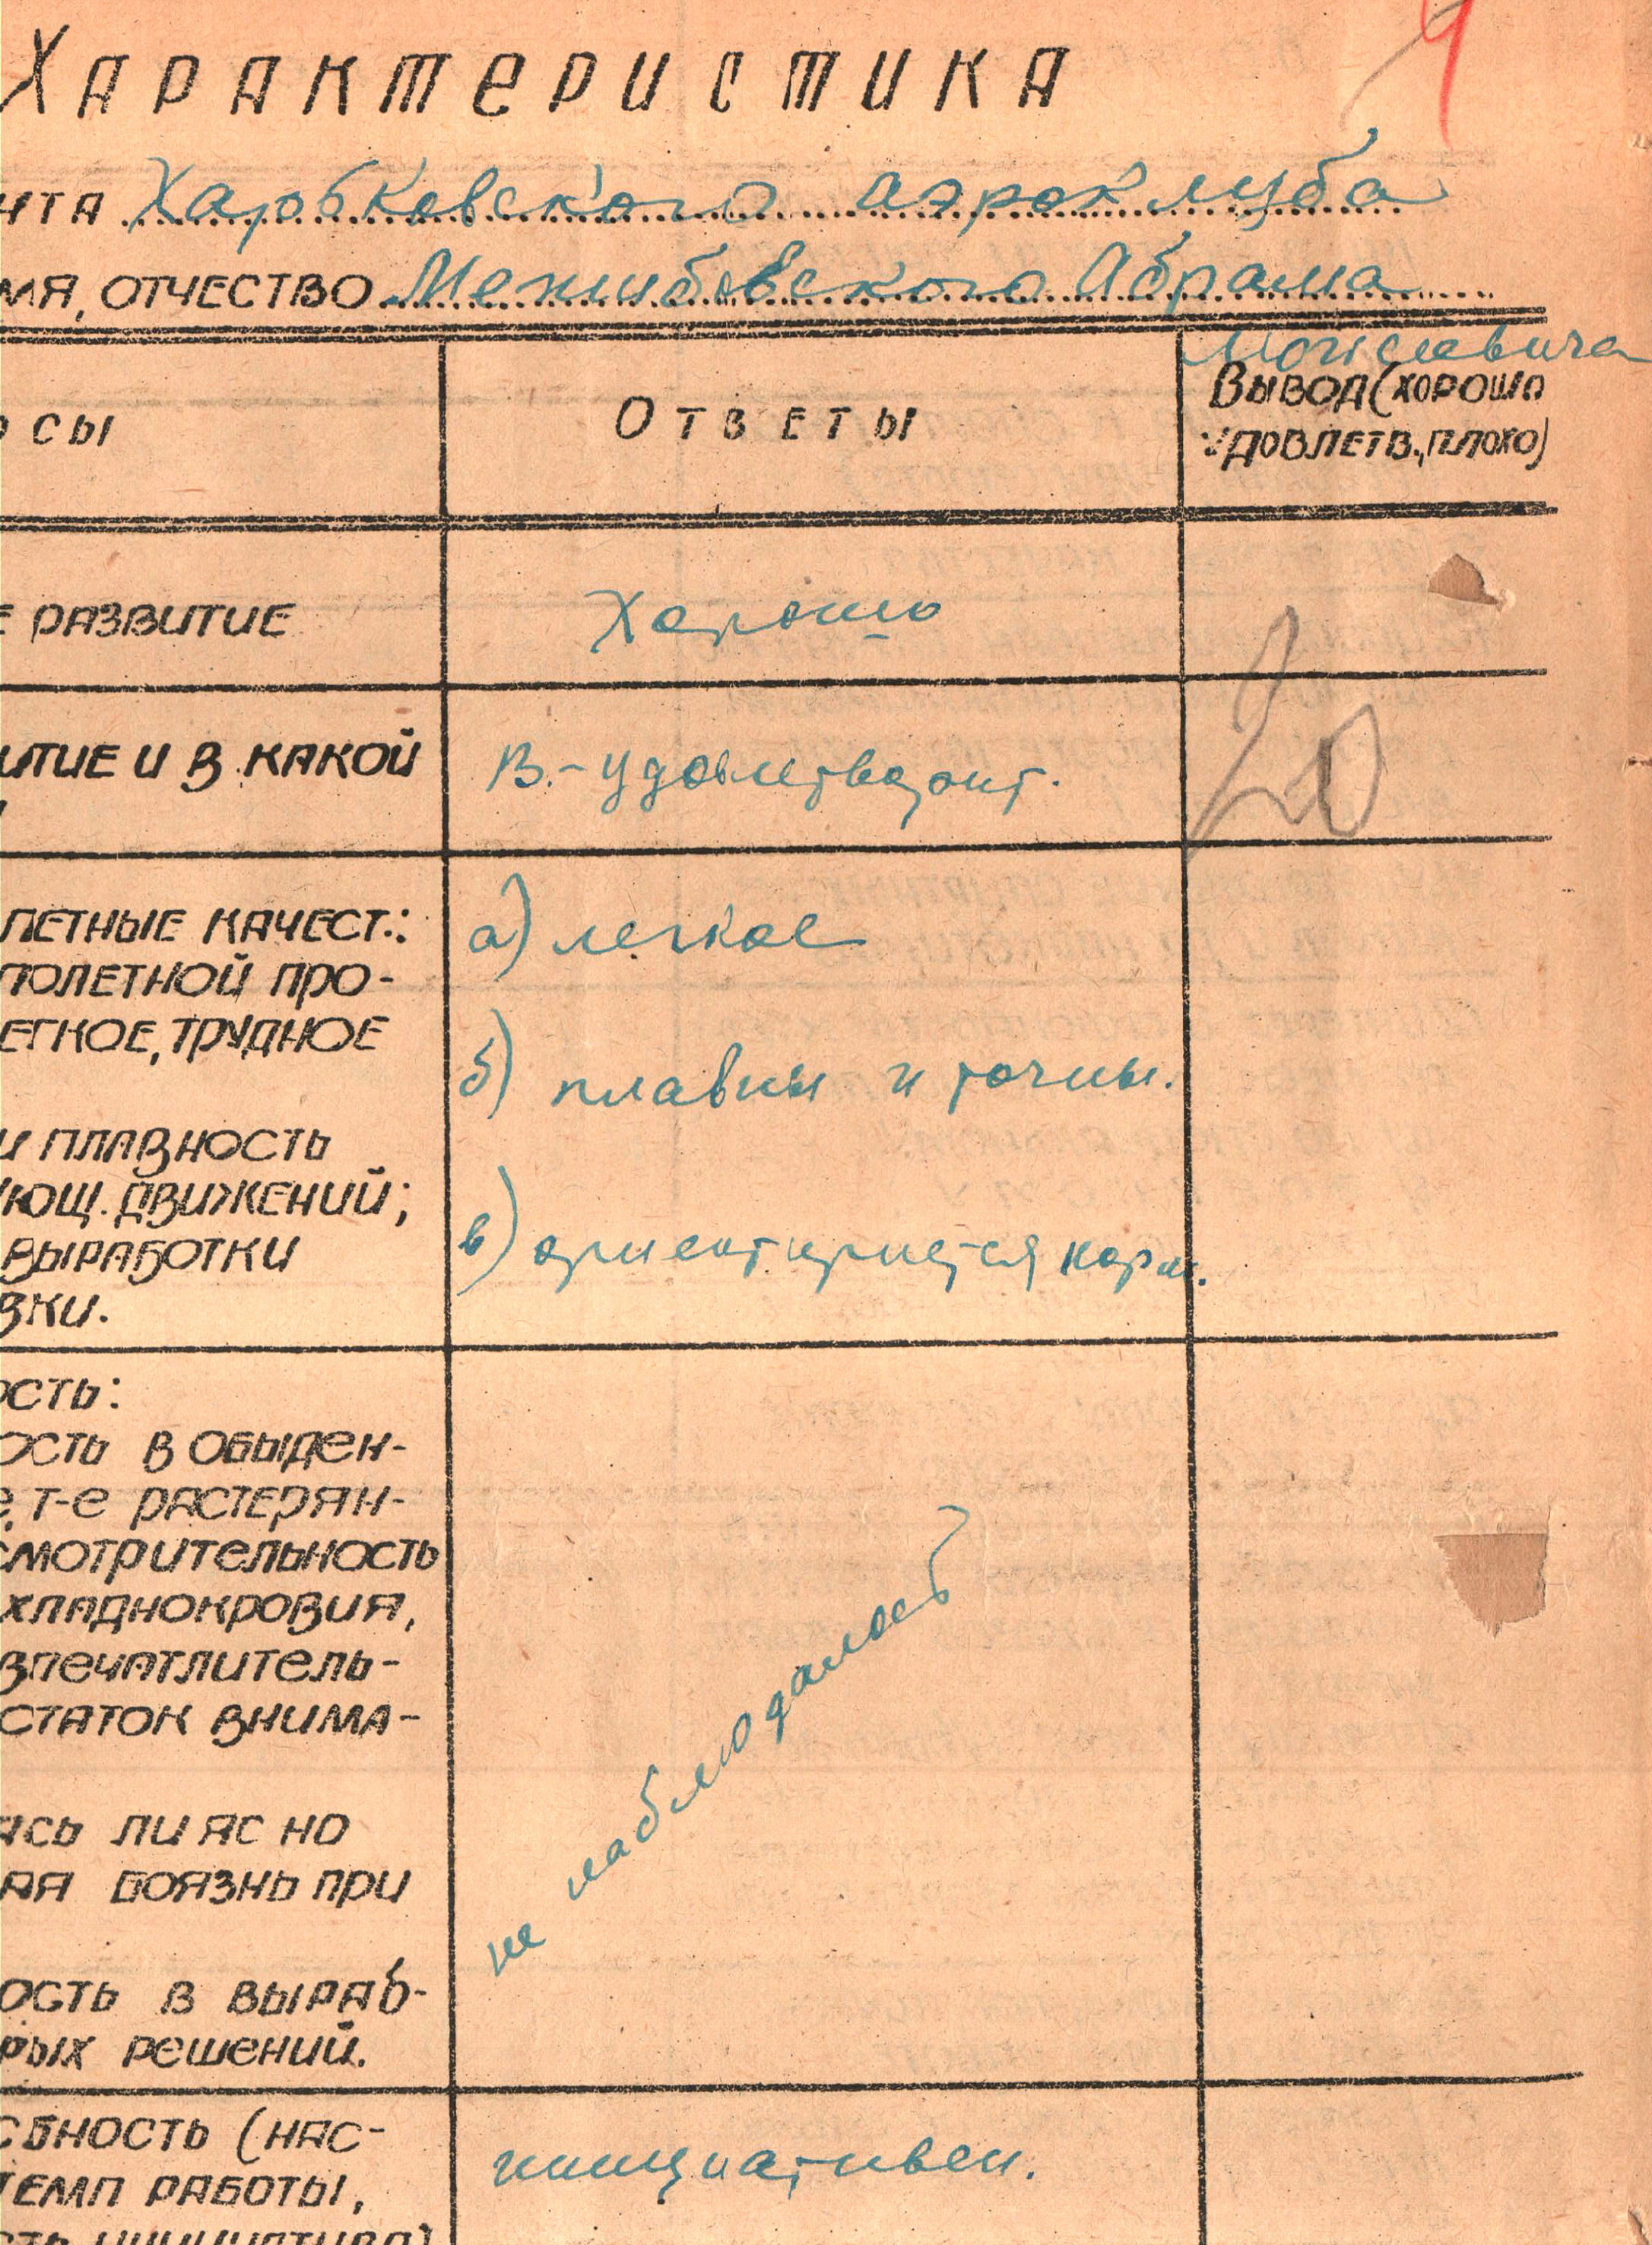 9
Характеристика
нта Харьковского аэроклуба
мя, отчество Межибовского Абрама
Моисеевича
сы
Ответы
Вывод (хорошо
удовлетв., плохо)
е развитие
Хорошо
итие и в какой
В.-удовлетворит.
20
летные качест.:
а) легкое
полетной про-
егкое, трудное
б) плавны и точны.
и плавность
ющ. движений;
в) ориентируется норм.
выработки
вки.
ость:
ость в обыден-
е, т-е растерян-
смотрительность
хладнокровия,
впечатлитель-
статок внима-
не наблюдалось
ась ли ясно
ая боязнь при
ость в выраб-
рых решений.
сбность (нас-
инициативен.
темп работы,
сть инициатива)